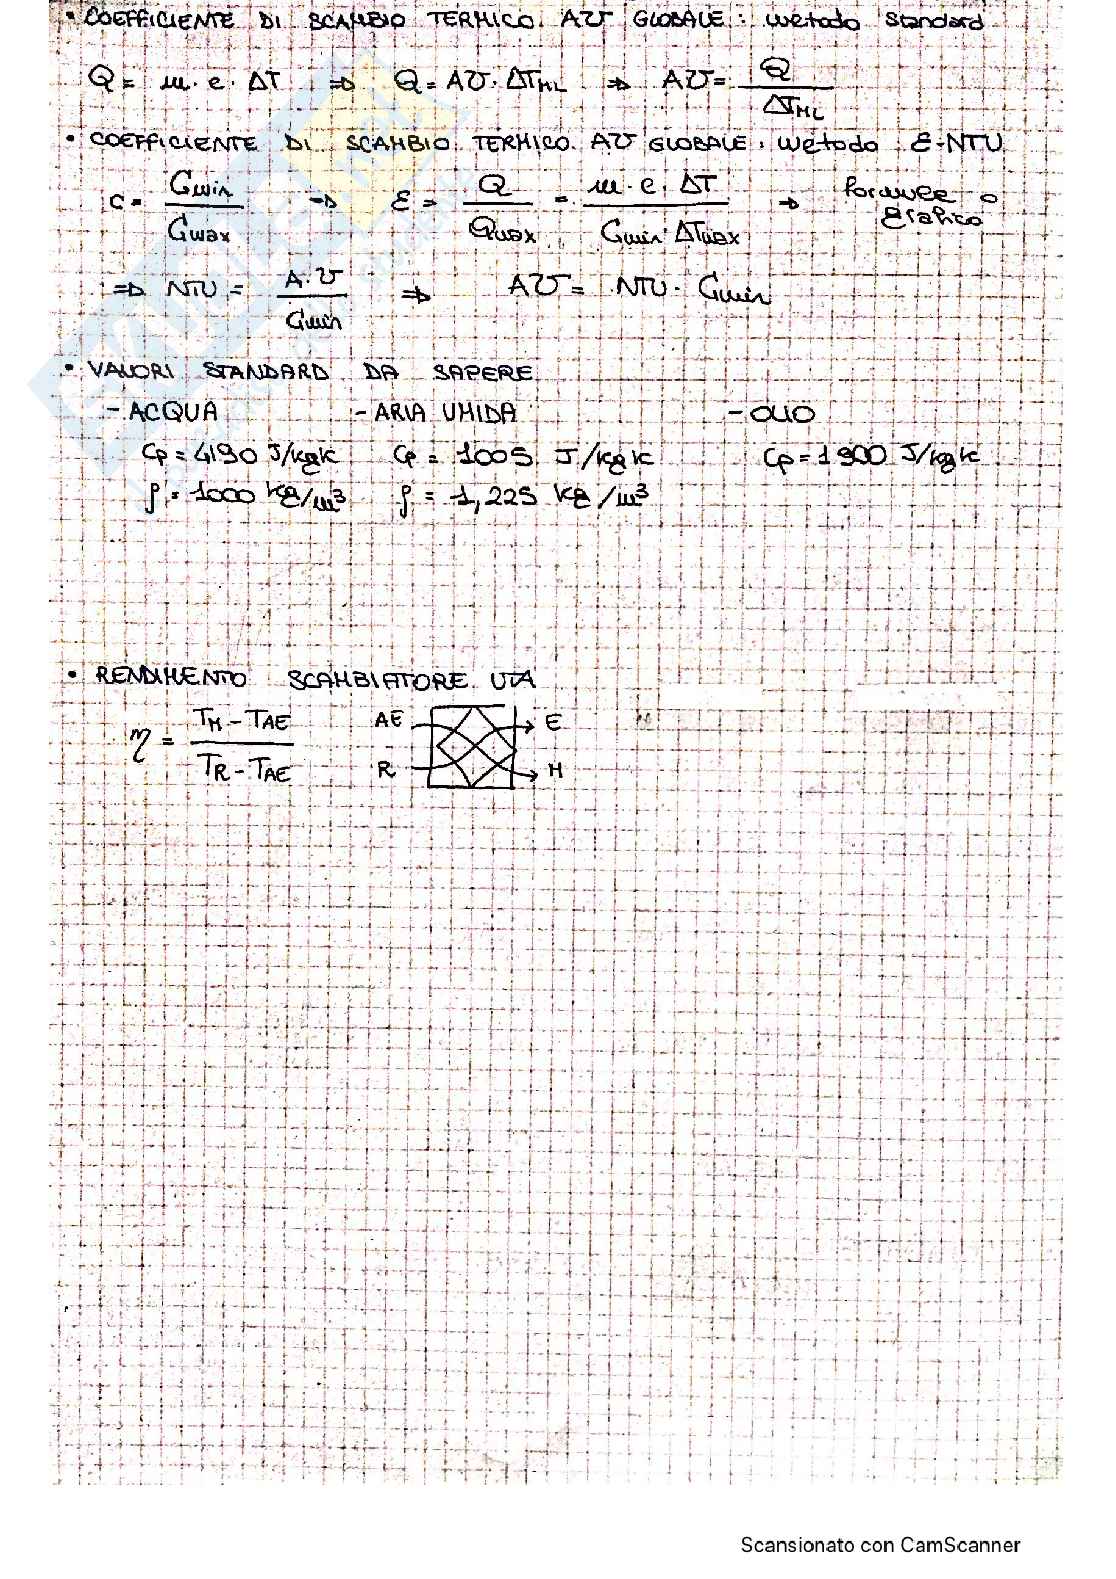 • COEFFICIENTE DI SCAMBIO TERMICO AU GLOBALE: metodo standard
Q = m·c·ΔT ⇒ Q = AU·ΔT_ML ⇒ AU = Q / ΔT_ML
• COEFFICIENTE DI SCAMBIO TERMICO AU GLOBALE: metodo ε-NTU
C = Cmin / Cmax → ε = Q / Qmax = m·c·ΔT / Cmin·ΔTmax → formule o grafico
⇒ NTU = A·U / Cmin ⇒ AU = NTU·Cmin
• VALORI STANDARD DA SAPERE
- ACQUA - ARIA UMIDA - OLIO
Cp = 4190 J/kgK Cp = 1005 J/kgK Cp = 1900 J/kgK
ρ = 1000 kg/m³ ρ = 1,225 kg/m³
• RENDIMENTO SCAMBIATORE UTA
η = T_M - T_AE / T_R - T_AE
AE E
R M
Scansionato con CamScanner